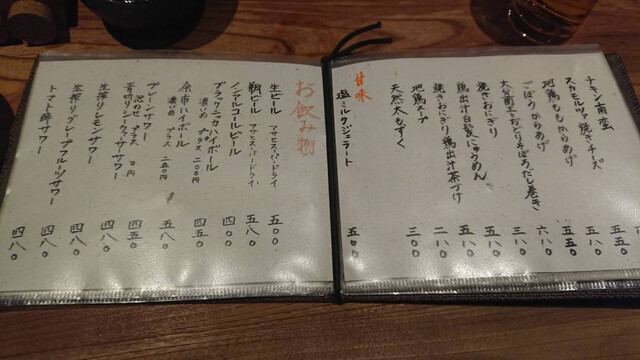 チキン南蛮 五五〇
スカモルツァ焼きチーズ 五八〇
地鶏ももからあげ 五五〇
ごぼうからあげ 六八〇
大分菌王なとりそぼろだし巻き 三八〇
焼きおにぎり
鶏出汁白髪にゅうめん 五八〇
焼きおにぎり鶏出汁茶づけ 五八〇
地鶏スープ 二八〇
天然太もずく 三〇〇
甘味
塩ミルクジェラート 五〇〇
お飲み物
生ビール アサヒスーパードライ 五〇〇
瓶ビール アサヒスーパードライ 五八〇
ノンアルコールビール 四〇〇
ブラックニッカハイボール 四五〇
濃いめ プラス二〇〇円
余市ハイボール 五八〇
濃いめ プラス二五〇円
プレーンサワー 四五〇
沢のせ プラス 〇円
青切りシークヮーサーサワー 四八〇
生搾りレモンサワー 四八〇
生搾りグレープフルーツサワー 四八〇
トマト酢サワー 四八〇